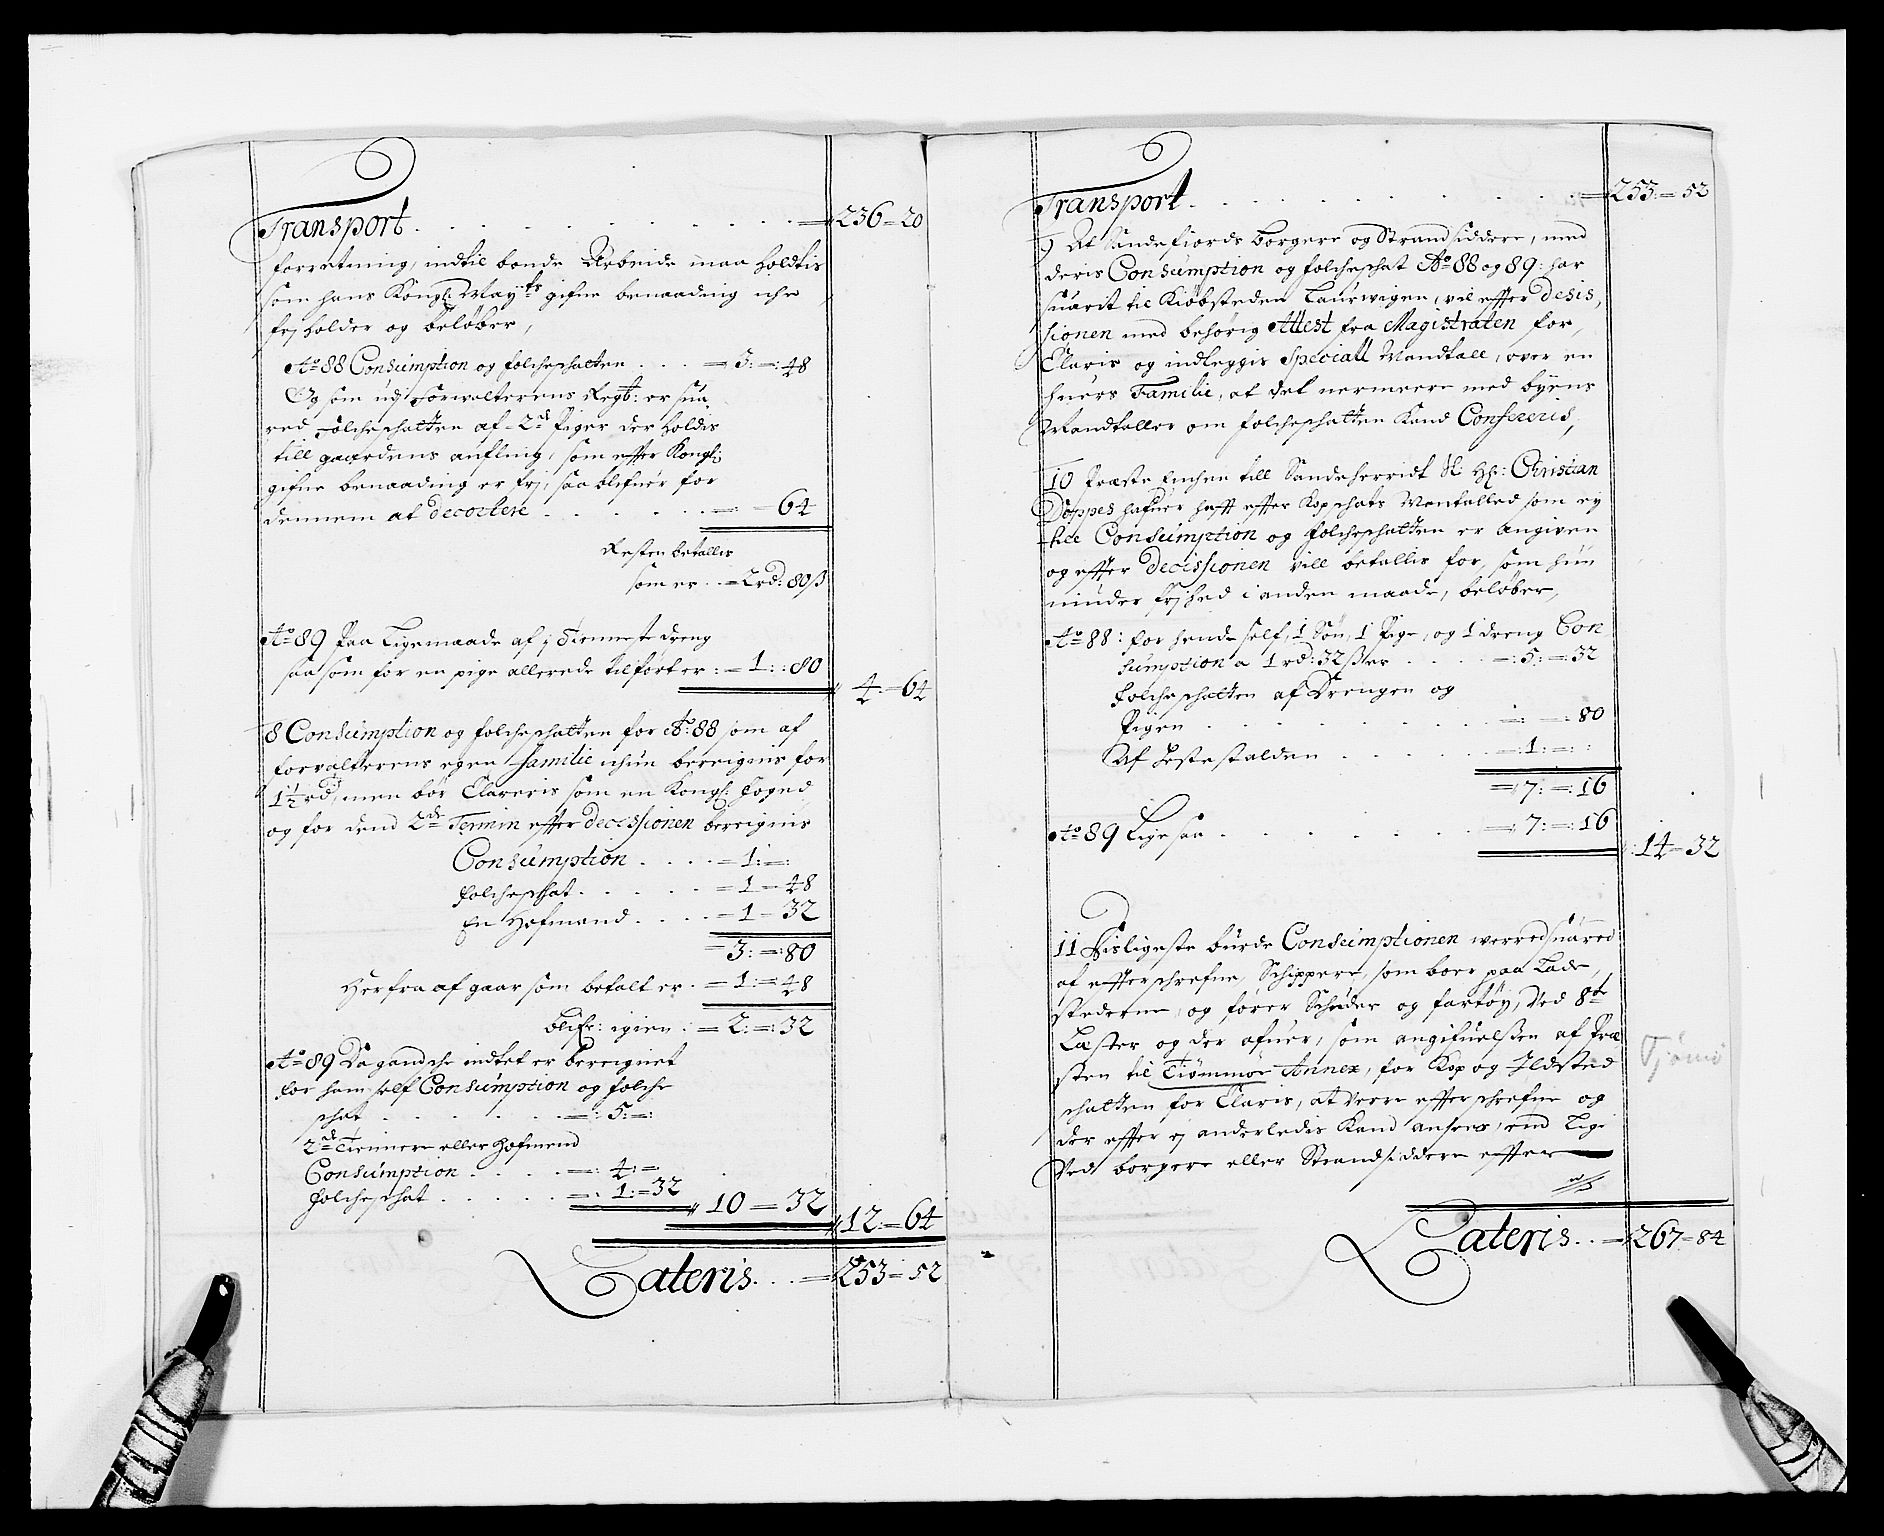 Transport . . . . . . . = 236 = 20
forretning, indtil bonde Arbeide maa Holdtis
som hans Kongl: May:ts gifne benaading iche
frj holder og beløber,
Ao 88 Consumption og folcheschatten . . . = 3: =: 48
Og som udj Forwalterens Regt: er sua
red folcheschatten af 2de Piger der Holdis
till gaardens aufling, som effter Kongl:
gifne benaading er frj, saa blifuer for
dennem at decortere . . . . . = = 64
Resten betallis
som er . . = 2 rd: 80 ß
Ao 89 Paa Ligemaade af 1 Tienneste dreng
saa som for en pige allerede tilført er : = 1: : 80
4 = 64
8 Consumption og folcheschatten for Ao: 88 som af
forvalterens egen familie ichun beregnis for
1½ rd, men bør Clareris som en Kongl: Foged
og for dend 2de Termin effter decissionen beregnis
Consumption . . . . = 1: =:
folcheschat . . . . . = 1 = 48
En Hofmand . . . . = 1 = 32
= 3: =: 80
Herfra af gaar som betalt er . = 1: = 48
blifr: igien : = 2: =: 32
Ao 89 Da gandsche indtet er beregnet
for ham self Consumption og folche
schat . . . . . . =: 5: =:
2de Tiennere eller Hofmend
Consumption . . . . =: 4: =
folcheschat . . . . . =: 1: = 32
10 = 32
12: = 64
Lateris . . . = 253 = 52
Transport . . . . . . . . = 253: = 52
9 At Sandefiords borgere og Strandsiddere, med
deris Consumption og folcheschat Ao 88 og 89: har
suarit til Kiøbsteden Laurwigen, vil effter desis,
sionen med behørig Attest fra Magistraten for,
Claris og indleggis Speciall Mandtall, over en
huers Familie, at det nermeere med byens
Mandtaller om folcheschatten Kand Confereris,
10 Præste Enchen till Sandeherridt Sl: Hr: Christian
Doppes hafuer hafft effter Kopschats Mentalled som ey
til Consumption og folcheschatten er angiven
og effter decissionen vill betallis for, som hun
niuder frjhed i anden maade, beløber,
Ao 88: for hende self, 1 Søn, 1 Pige, og 1 dreng Con
sumption a 1 rd: 32 ß er . . . . =: 5: =: 32
folcheschatten af Drengen og
Pigen . . . . . . . . . =: =: 80
Af Hestestalden . . . . . =: 1: =: :
= 7: =: 16
Ao 89 Ligesaa . . . . . . . = 7: =: 16
14 = 32
11 Disligeste burde Consumptionen werred suared
af effterschrefne Schippere, som boer paa Lade,
stederne, og fører Schuder og fartøy, Ved 8te
Læster og der ofuer, som angifuelsen af Præ
sten til Tiømmøe Annex, for Kop og Ildsted
schatten for Claris, at were effterschrefne og
der effter ej anderledis Kand ansees, end Lige
Ved borgere eller Strandsiddere effter
Tjømø
Lateris . . = 267 = 84